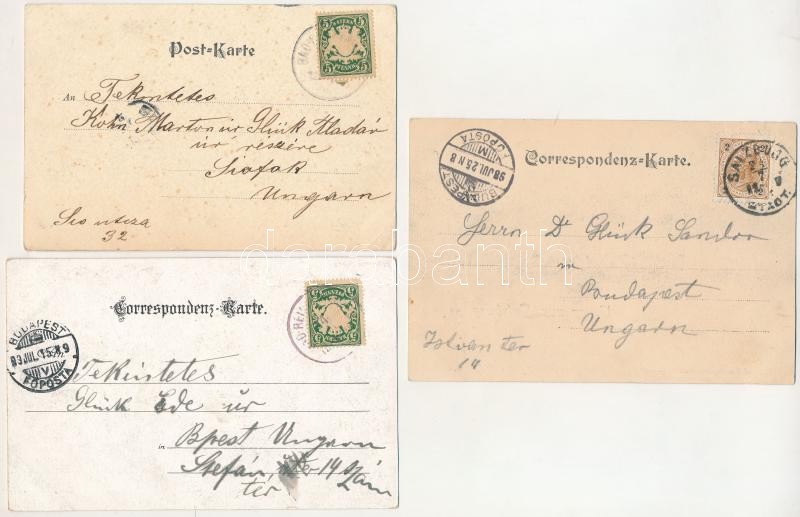 Post-Karte
BAYERN
5 5
PFENNIG
An Tekintetes
Kohn Marton úr Glück Aladár
úr részére
Siofok
Ungarn
Sio utcza
32
Correspondenz-Karte.
BUDAPEST
98 JUL. 23 N 8
FŐPOSTA
2 2
SALZBURG
STADT.
Herrn Dr Glück Sandor
in
Budapest
Ungarn
Istvan ter
14
darabanth
Correspondenz-Karte.
BUDAPEST
JUL. 15
FŐPOSTA
V
BAYERN
5 5
PFENNIG
Tekintetes
Glück Ede úr
in Bpest Ungarn
Stefán ter 14 szám
ter